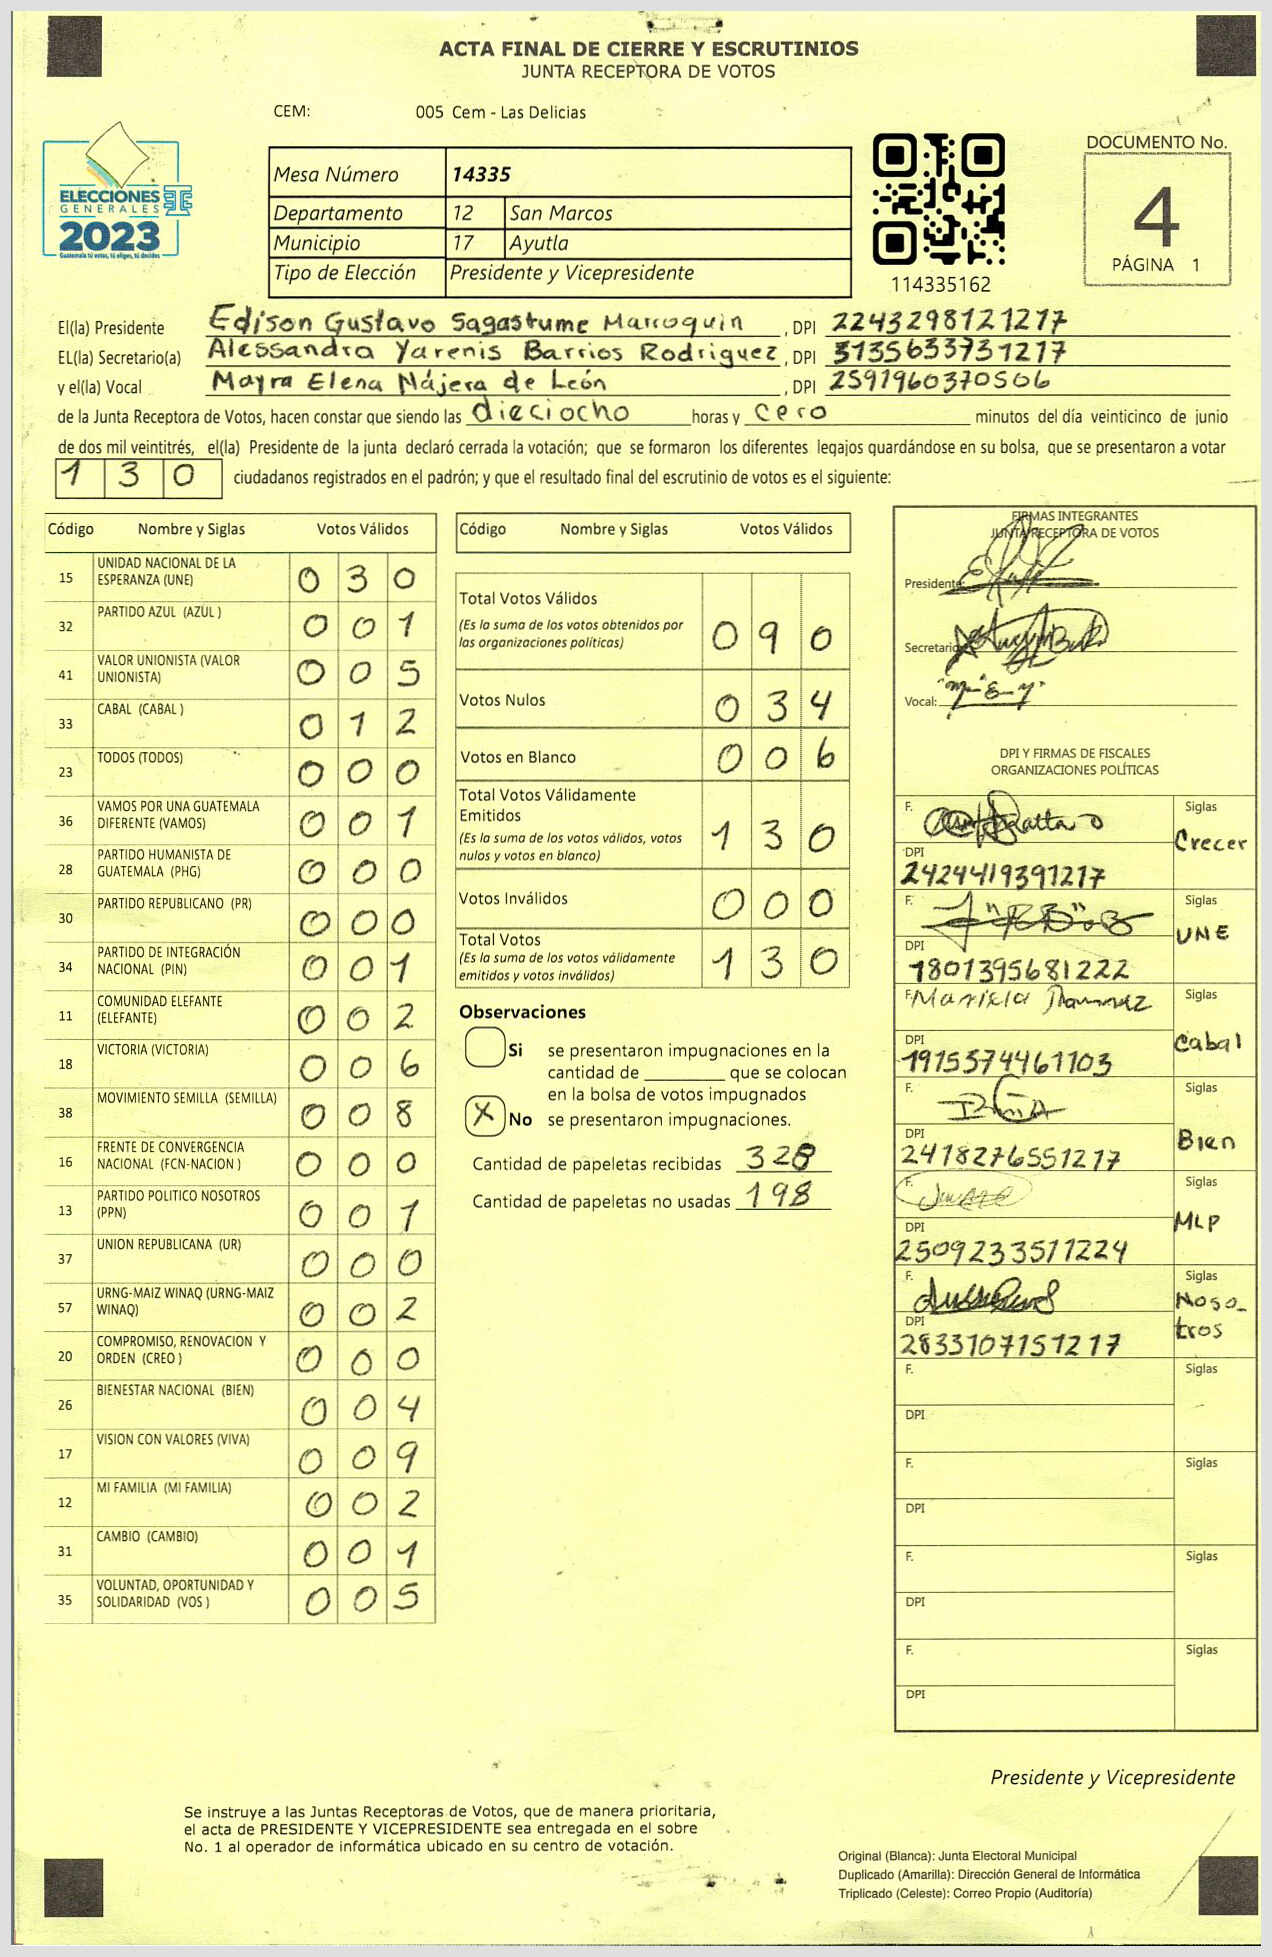 ACTA FINAL DE CIERRE Y ESCRUTINIOS
JUNTA RECEPTORA DE VOTOS
CEM: 005 Cem - Las Delicias
ELECCIONES
GENERALES
2023
Guatemala tú votas, tú eliges, tú decides
Mesa Número 14335
Departamento 12 San Marcos
Municipio 17 Ayutla
Tipo de Elección Presidente y Vicepresidente
114335162
DOCUMENTO No.
4
PÁGINA 1
El(la) Presidente Edison Gustavo Sagastume Marroquin, DPI 2243298121217
EL(la) Secretario(a) Alessandra Yarenis Barrios Rodriguez, DPI 3135633731217
y el(la) Vocal Mayra Elena Nájera de León, DPI 2591960370506
de la Junta Receptora de Votos, hacen constar que siendo las dieciocho horas y cero minutos del día veinticinco de junio
de dos mil veintitrés, el(la) Presidente de la junta declaró cerrada la votación; que se formaron los diferentes legajos guardándose en su bolsa, que se presentaron a votar
130 ciudadanos registrados en el padrón; y que el resultado final del escrutinio de votos es el siguiente:
Código Nombre y Siglas Votos Válidos
15 UNIDAD NACIONAL DE LA
ESPERANZA (UNE) 030
32 PARTIDO AZUL (AZUL ) 001
41 VALOR UNIONISTA (VALOR
UNIONISTA) 005
33 CABAL (CABAL ) 012
23 TODOS (TODOS) 000
36 VAMOS POR UNA GUATEMALA
DIFERENTE (VAMOS) 001
28 PARTIDO HUMANISTA DE
GUATEMALA (PHG) 000
30 PARTIDO REPUBLICANO (PR) 000
34 PARTIDO DE INTEGRACIÓN
NACIONAL (PIN) 001
11 COMUNIDAD ELEFANTE
(ELEFANTE) 002
18 VICTORIA (VICTORIA) 006
38 MOVIMIENTO SEMILLA (SEMILLA) 008
16 FRENTE DE CONVERGENCIA
NACIONAL (FCN-NACION ) 000
13 PARTIDO POLITICO NOSOTROS
(PPN) 001
37 UNION REPUBLICANA (UR) 000
57 URNG-MAIZ WINAQ (URNG-MAIZ
WINAQ) 002
20 COMPROMISO, RENOVACION Y
ORDEN (CREO ) 000
26 BIENESTAR NACIONAL (BIEN) 004
17 VISION CON VALORES (VIVA) 009
12 MI FAMILIA (MI FAMILIA) 002
31 CAMBIO (CAMBIO) 001
35 VOLUNTAD, OPORTUNIDAD Y
SOLIDARIDAD (VOS ) 005
Código Nombre y Siglas Votos Válidos
Total Votos Válidos
(Es la suma de los votos obtenidos por
las organizaciones políticas) 090
Votos Nulos 034
Votos en Blanco 006
Total Votos Válidamente
Emitidos
(Es la suma de los votos válidos, votos
nulos y votos en blanco) 130
Votos Inválidos 000
Total Votos
(Es la suma de los votos válidamente
emitidos y votos inválidos) 130
Observaciones
Si se presentaron impugnaciones en la
cantidad de ________ que se colocan
en la bolsa de votos impugnados
X No se presentaron impugnaciones.
Cantidad de papeletas recibidas 328
Cantidad de papeletas no usadas 198
FIRMAS INTEGRANTES
JUNTA RECEPTORA DE VOTOS
Presidente:
Secretario
Vocal:
DPI Y FIRMAS DE FISCALES
ORGANIZACIONES POLÍTICAS
F. Siglas
Crecer
DPI
2424419391217
F. Siglas
UNE
DPI
1801395681222
F. Siglas
Cabal
DPI
1915374461103
F. Siglas
Bien
DPI
2418276551217
F. Siglas
MLP
DPI
2509233511224
F. Siglas
Noso-
tros
DPI
2833107151217
F. Siglas
DPI
F. Siglas
DPI
F. Siglas
DPI
F. Siglas
DPI
Presidente y Vicepresidente
Se instruye a las Juntas Receptoras de Votos, que de manera prioritaria,
el acta de PRESIDENTE Y VICEPRESIDENTE sea entregada en el sobre
No. 1 al operador de informática ubicado en su centro de votación.
Original (Blanca): Junta Electoral Municipal
Duplicado (Amarilla): Dirección General de Informática
Triplicado (Celeste): Correo Propio (Auditoría)